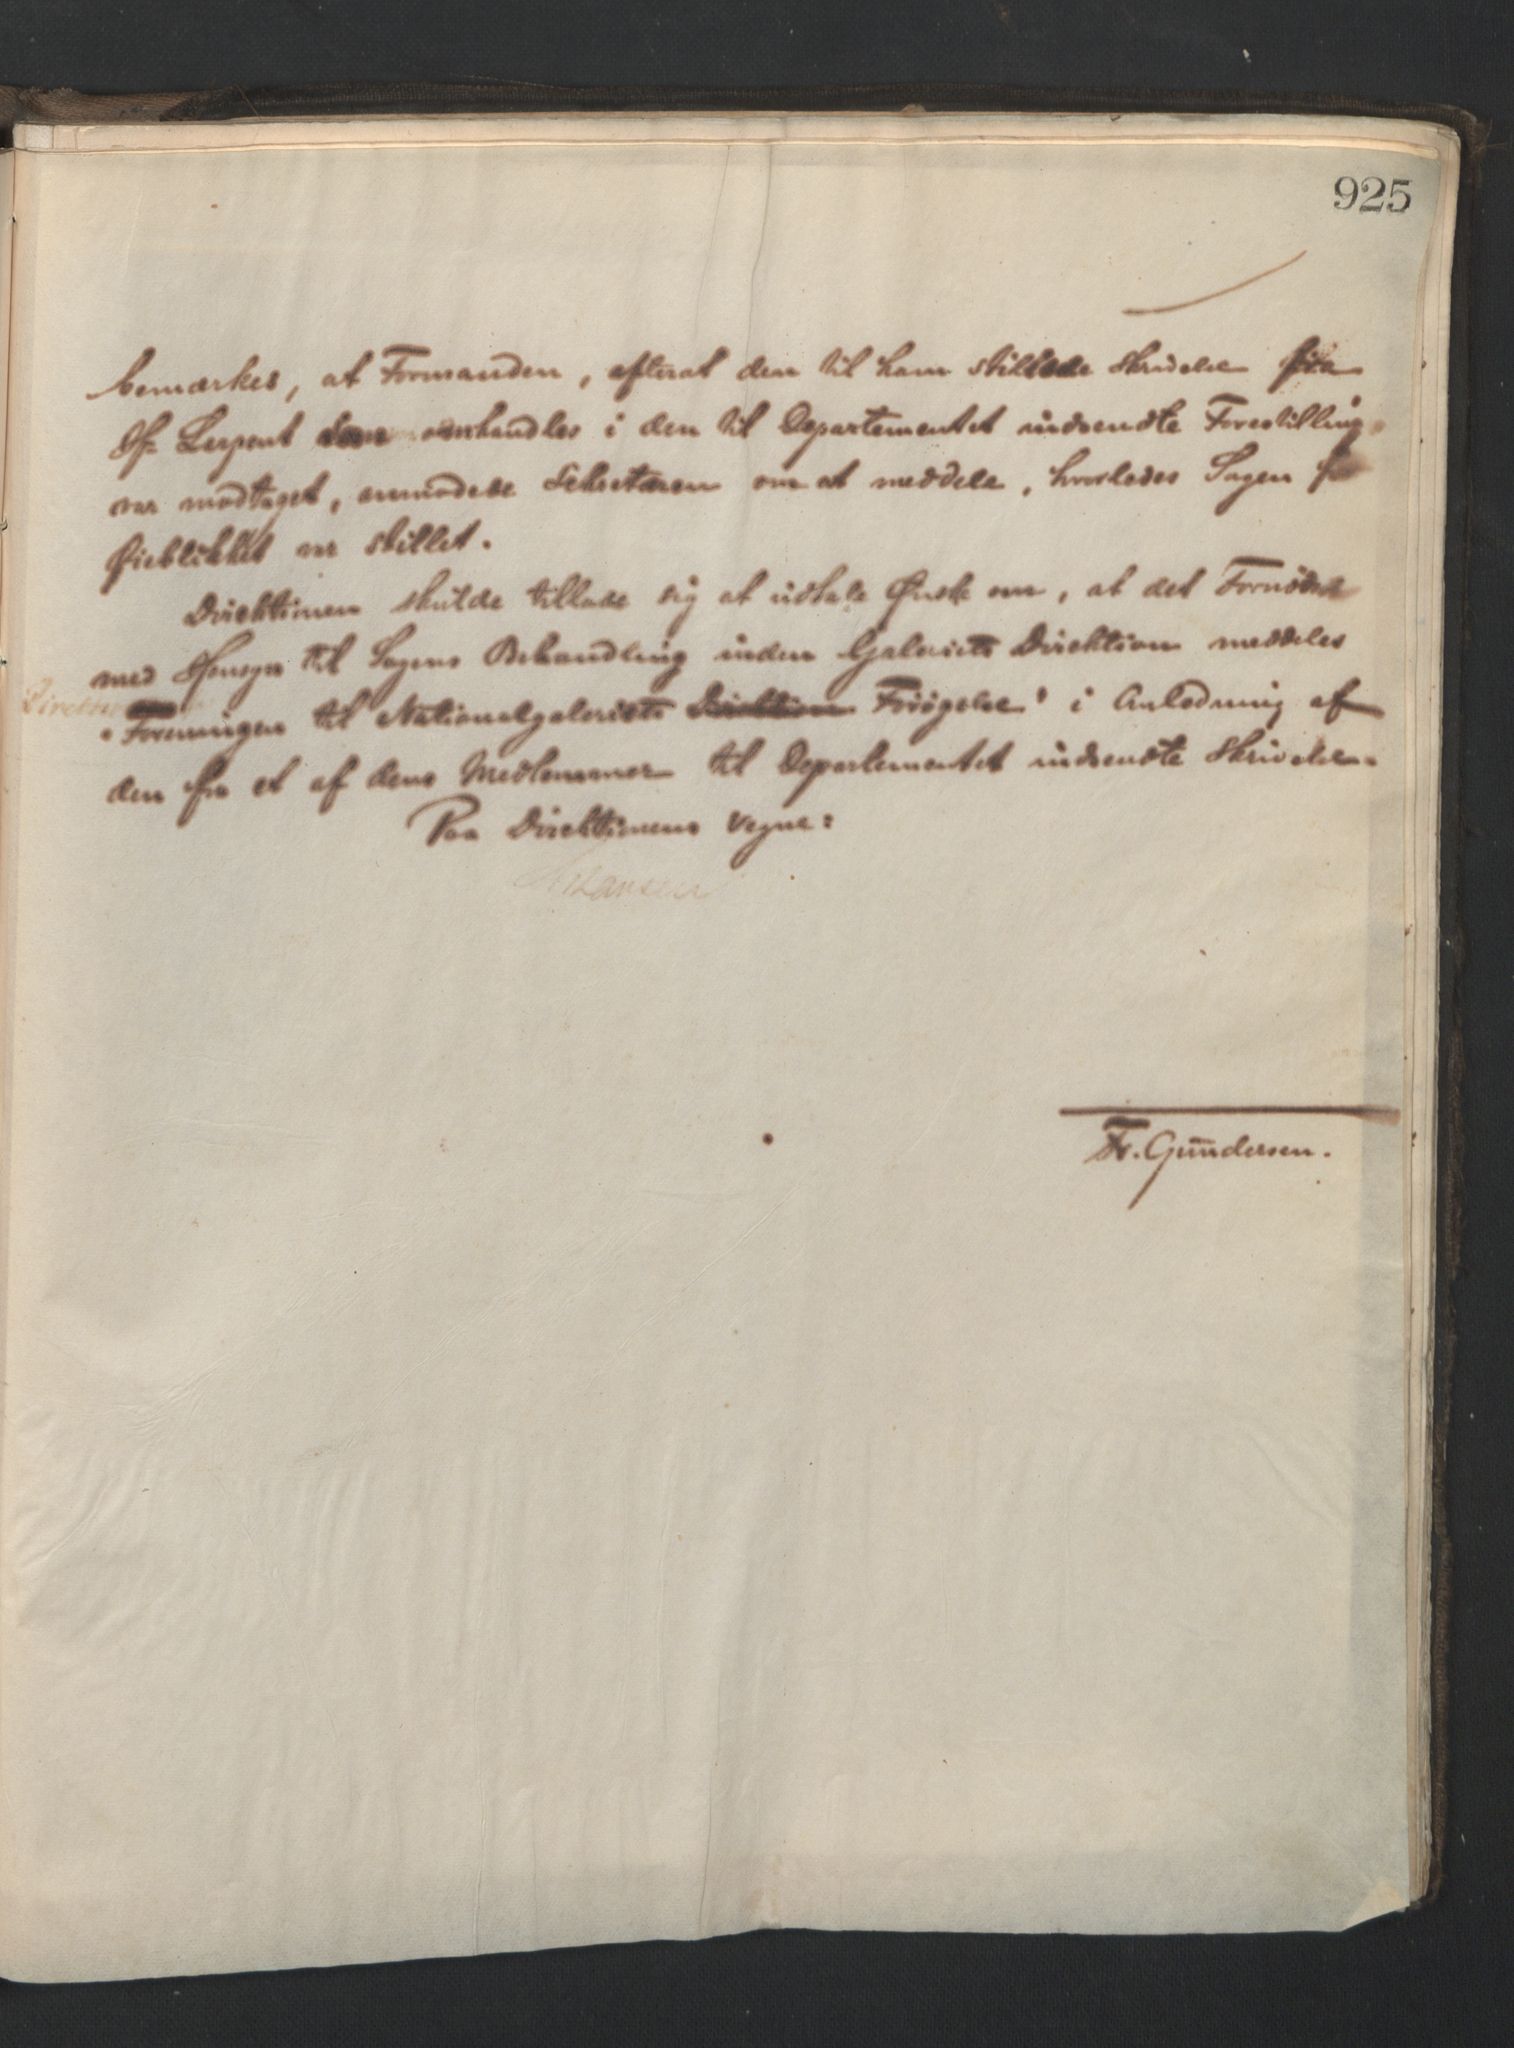 925
bemærkes, at Formanden, efterat den til ham stillede Skrivelse fra
Hr. Serpent som omhandles i den til Departementet indsendte Forestilling,
var modtaget, anmodede Sekretæren om at meddele, hvorledes Sagen for
Øieblikket var stillet.
Direktionen skulde tillade sig at udtale Ønske om, at det Fornødne
med Hensyn til Sagens Behandling inden Galeriets Direktion meddeles
"Foreningen til Nationalgaleriets Direktion Forøgelse" i Anledning af
den fra et af dens Medlemmer til Departementet indsendte Skrivelse.
Paa Direktionens Vegne:
Fr. Gundersen.